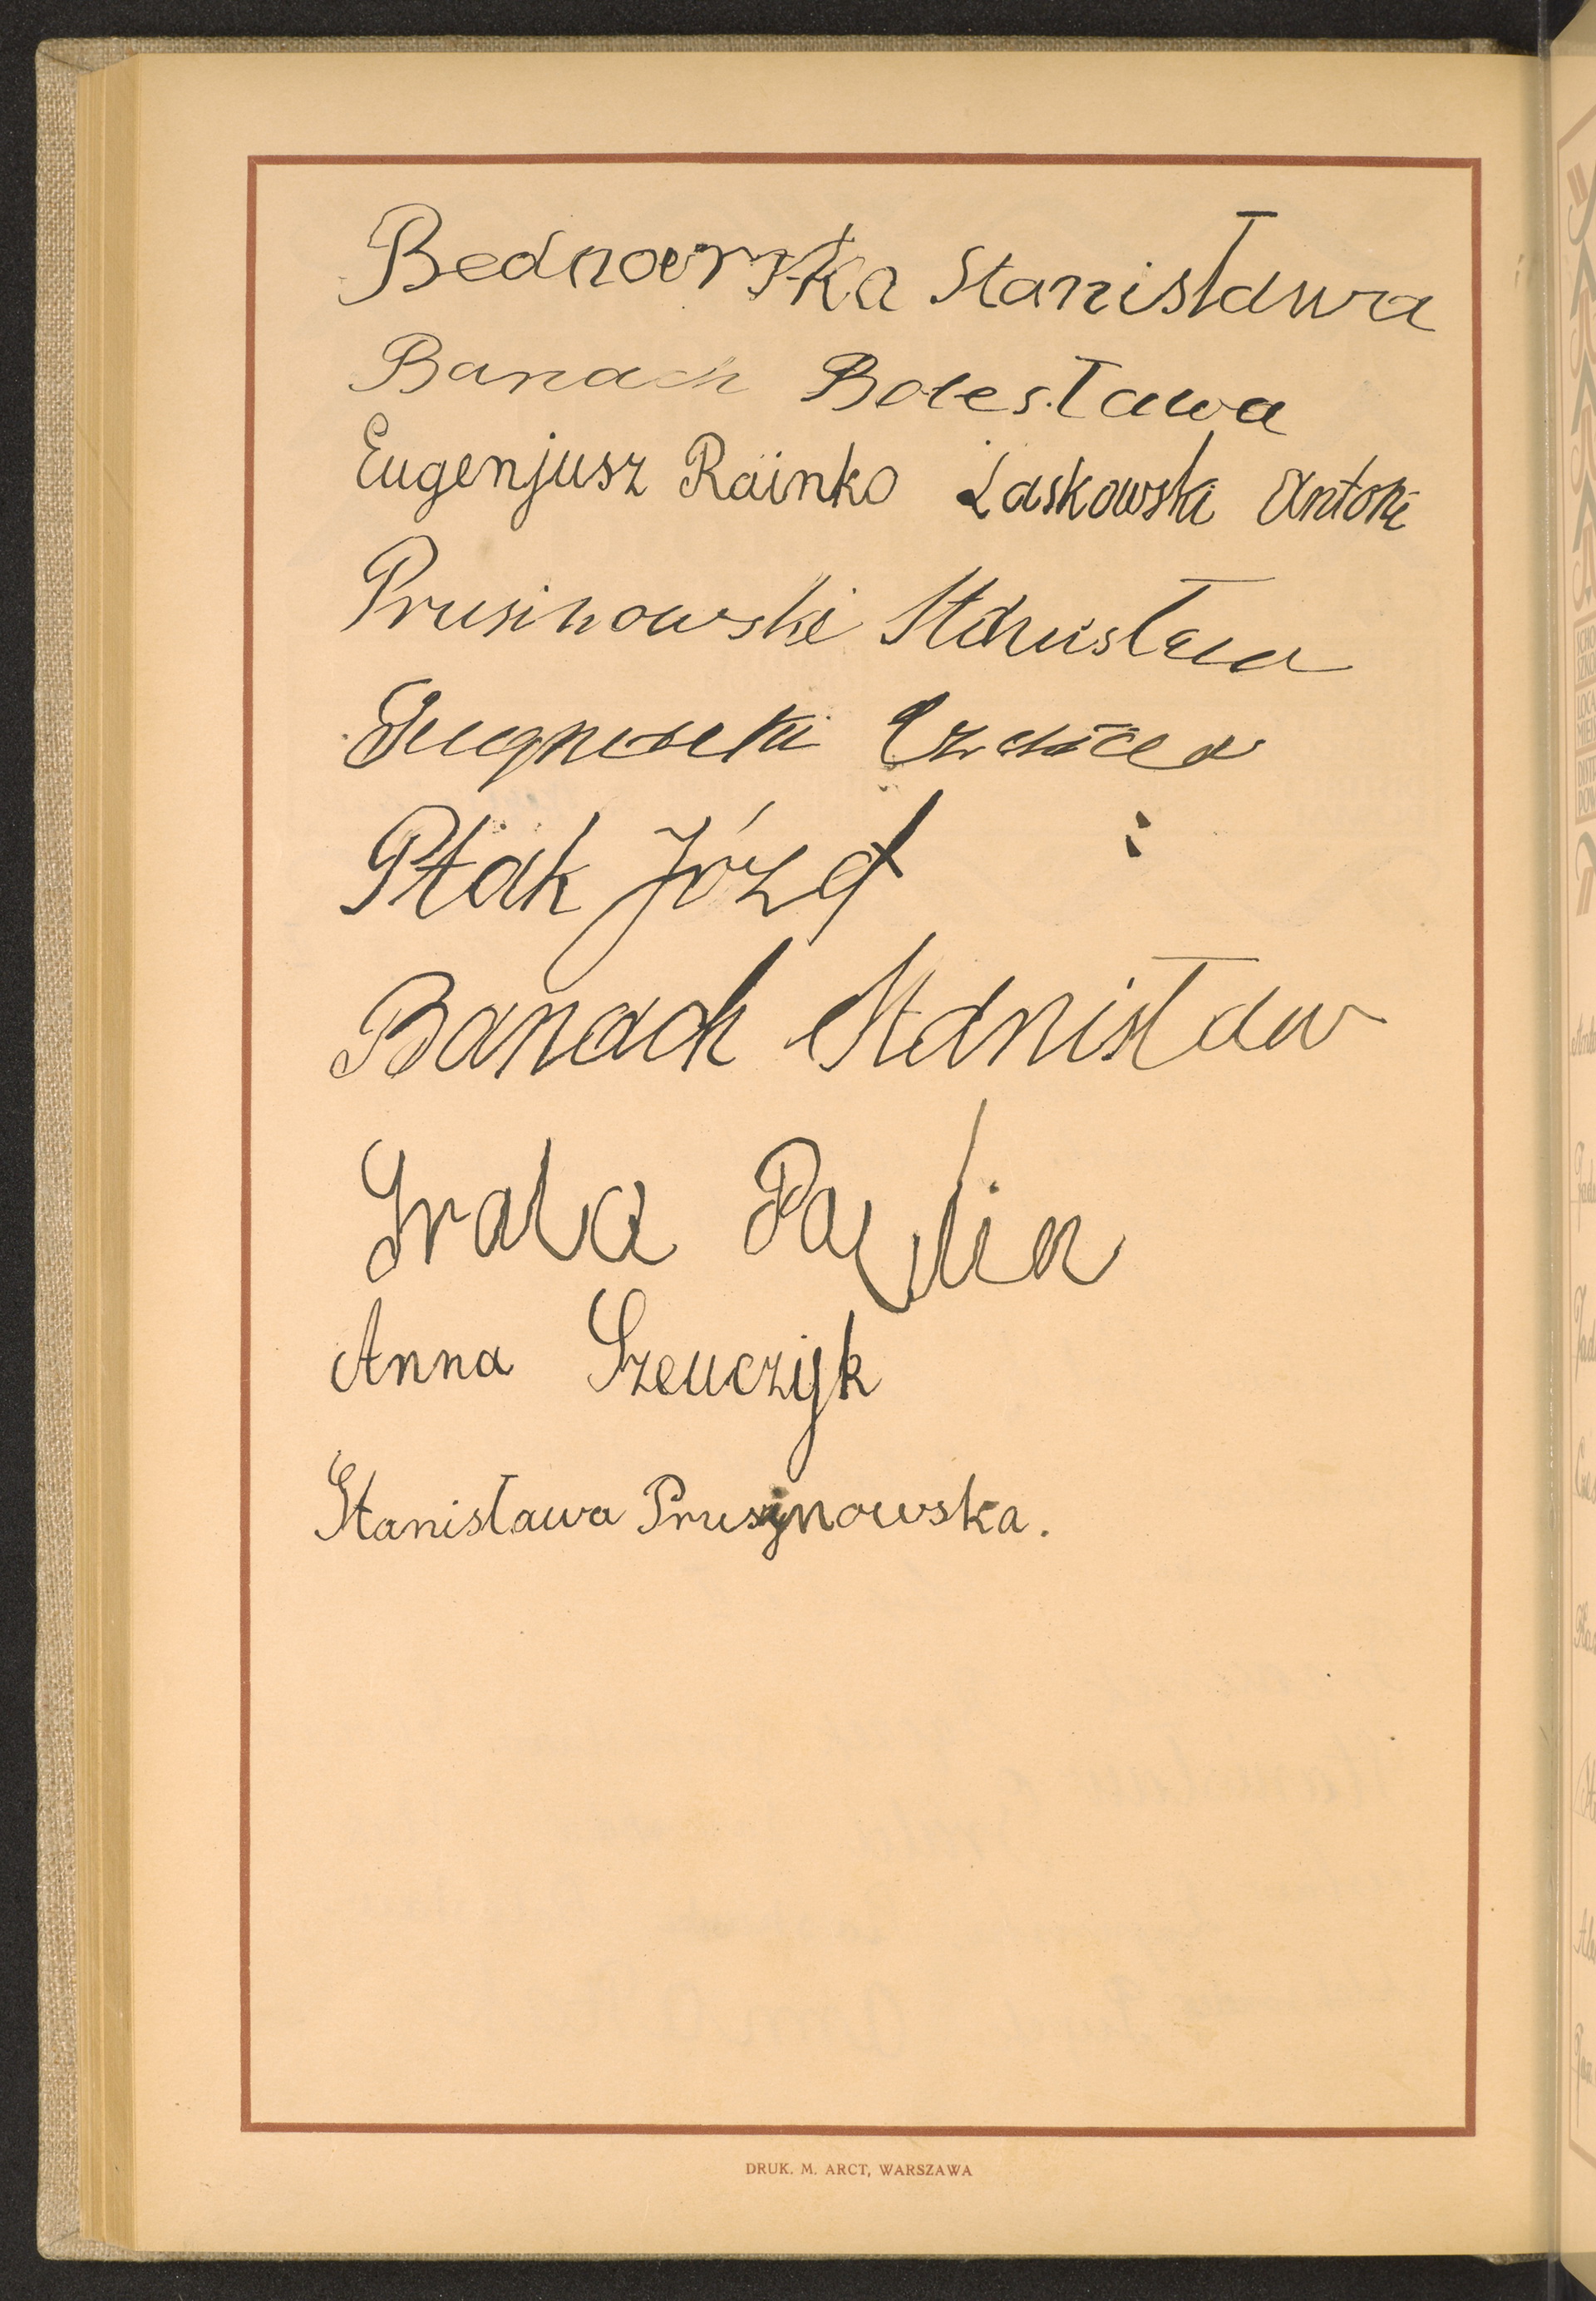 Bednarska Stanisława
Banach Bolesława
Eugenjusz Rainko Laskowski Antoni
Prusinowski Stanisław
Ptak Józef
Banach Stanisław
Anna Szeuczyk
Stanisława Prusynowska.
DRUK. M. ARCT, WARSZAWA